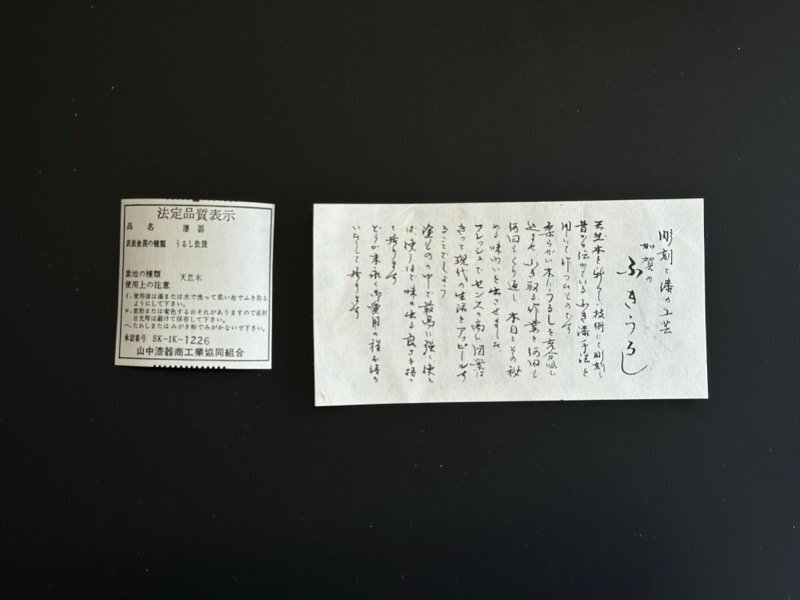 法定品質表示
品名 漆器
表面塗装の種類 うるし塗装
素地の種類 天然木
使用上の注意
イ．使用後は湯または水で洗って柔い布でふき取る
ようにして下さい。
ロ．変形または変色するおそれがありますので直射
日光等は避けて保存して下さい。
ハ．たわしまたはみがき粉でみがかないで下さい。
承認番号 SK-IK-1226
山中漆器商工業協同組合
彫刻と漆の工芸
加賀の
ふきうるし
天然木を 技術にて彫刻し
昔から伝わっているふき漆手法を
用いて作ったものです
柔らかい木にうるしを充分吸い
込ませ ふき取る作業を何回も
何回もくり返し 木目とその秘
める味わいを出させました
フレッシュでセンスの高い図案は
きっと現代の生活にアッピールす
ることでしょう
塗ものの中で最高に強く使え
ば使うほど味の出る良さを持っ
て居ります
どうか末永く御愛用の程お待ち
いたして居ります